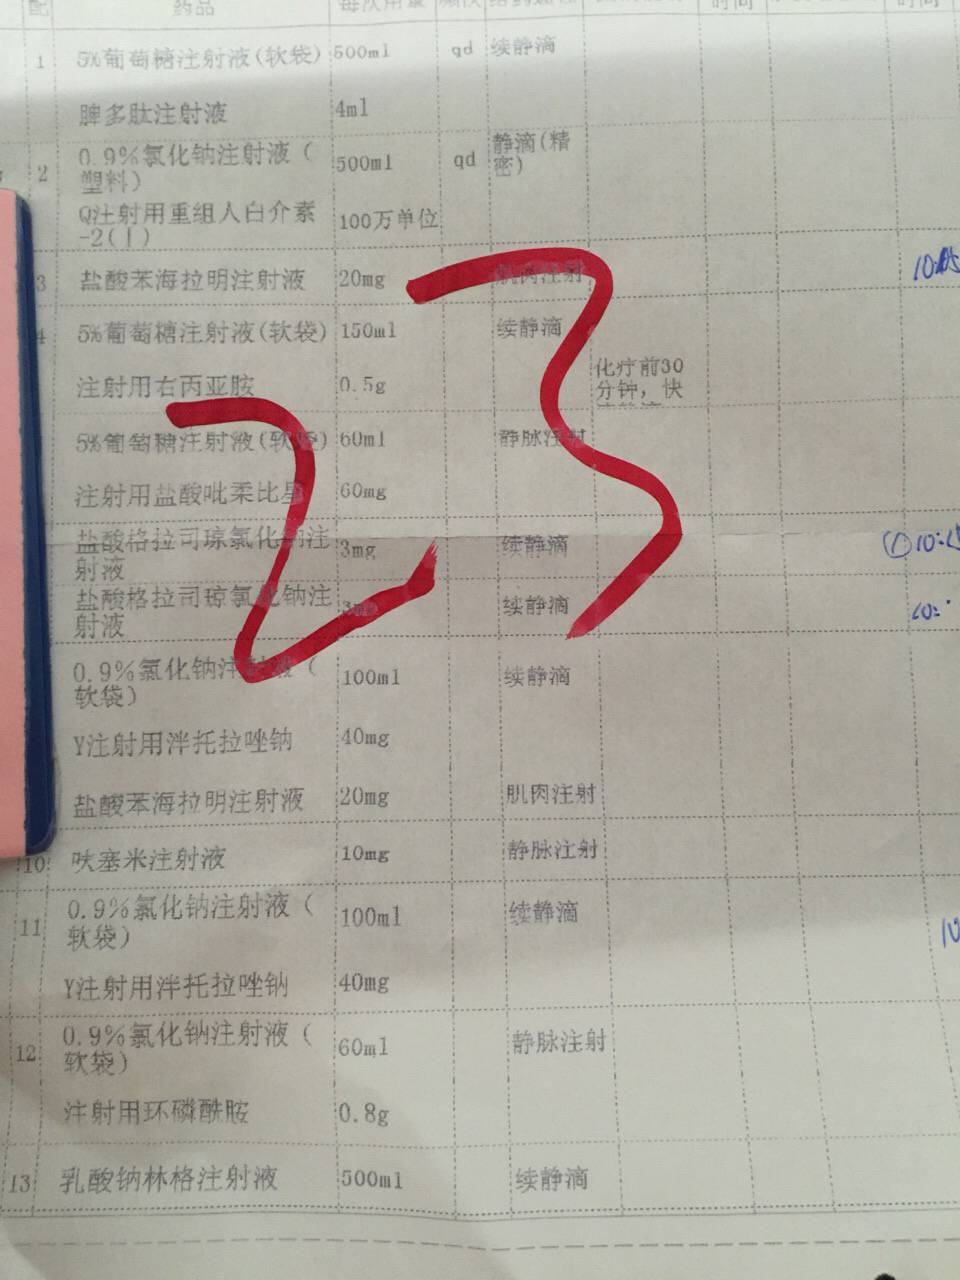 配 药品 每次用量 频次
1 5%葡萄糖注射液(软袋) 500ml qd 续静滴
脾多肽注射液 4ml
2 0.9%氯化钠注射液( 500ml qd 静滴(精
塑料) 密)
Q注射用重组人白介素 100万单位
-2(I)
3 盐酸苯海拉明注射液 20mg 肌肉注射
4 5%葡萄糖注射液(软袋) 150ml 续静滴
注射用右丙亚胺 0.5g 化疗前30
分钟，快
5%葡萄糖注射液(软袋) 60ml 静脉注射
注射用盐酸吡柔比星 60mg
盐酸格拉司琼氯化钠注 3mg 续静滴
射液
盐酸格拉司琼氯化钠注 3mg 续静滴
射液
0.9%氯化钠注射液( 100ml 续静滴
软袋)
Y注射用泮托拉唑钠 40mg
盐酸苯海拉明注射液 20mg 肌肉注射
10 呋塞米注射液 10mg 静脉注射
11 0.9%氯化钠注射液( 100ml 续静滴
软袋)
Y注射用泮托拉唑钠 40mg
12 0.9%氯化钠注射液( 60ml 静脉注射
软袋)
注射用环磷酰胺 0.8g
13 乳酸钠林格注射液 500ml 续静滴
23